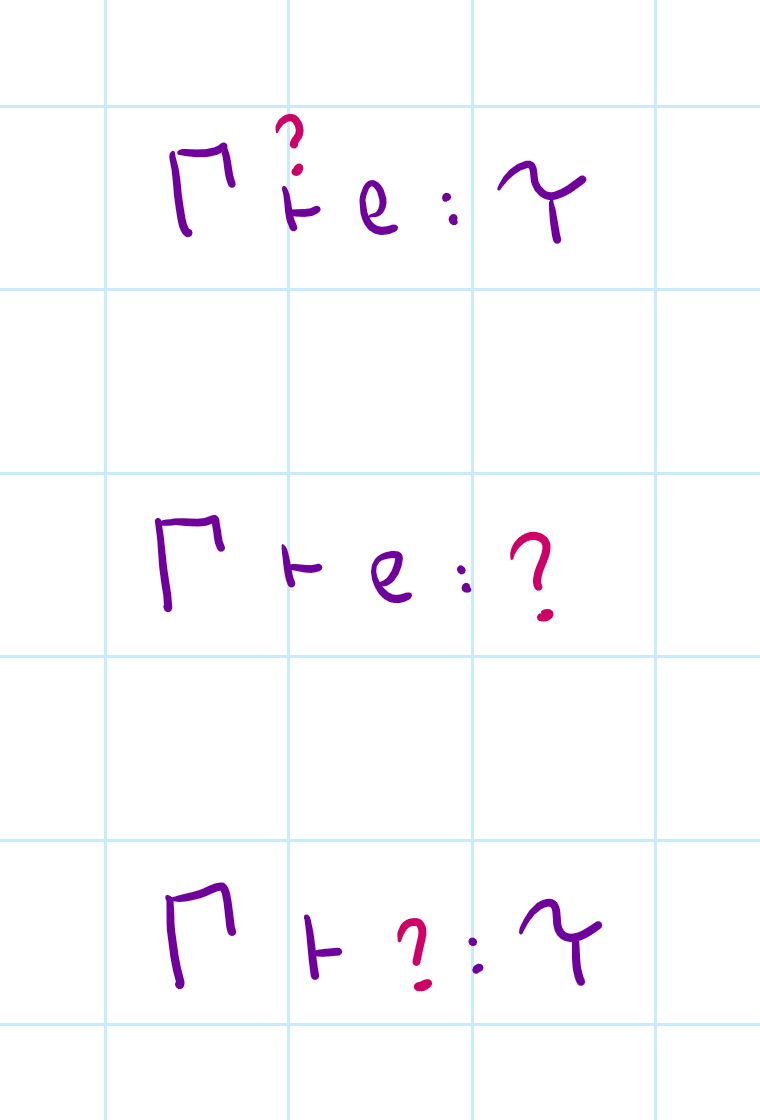 Γ ?⊢ e : τ
Γ ⊢ e : ?
Γ ⊢ ? : τ